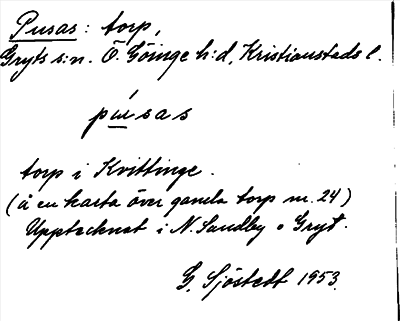 Pusas: torp,
Gryts s:n. Ö. Göinge h:d, Kristianstads l.
pú̱sas
torp i Kvittinge.
(å en karta över gamla torp nr. 24)
Upptecknat i N. Sandby o Gryt.
G. Sjöstedt 1953.